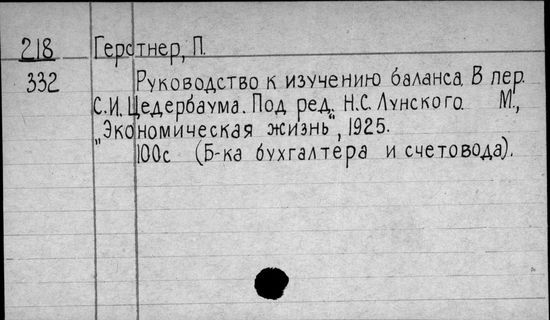 218 Герстнер, П.
332 Руководство к изучению баланса. В пер.
С.И. Цедербаума. Под ред. Н.С. Лунского. М.,
"Экономическая жизнь", 1925.
100с (Б-ка бухгалтера и счетовода).